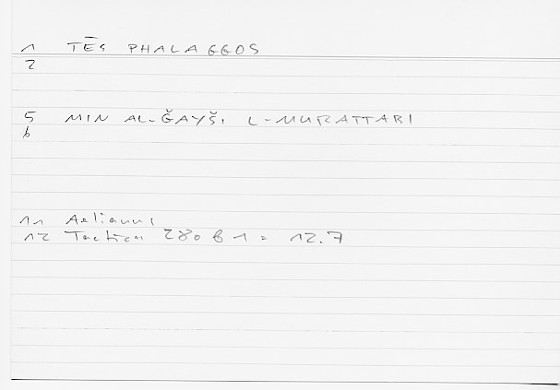 1 TĒS PHALAGGOS
2
5 MIN AL-ĞAYŠI L-MURATTABI
6
11 Aelianus
12 Tactica 280 B 1 = 12.7